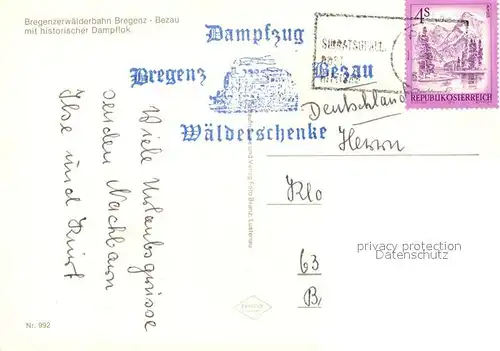 Bregenzerwälderbahn Bregenz - Bezau
mit historischer Dampflok.
Dampfzug
Bregenz Bezau
Wälderschenke
4S
REPUBLIK ÖSTERREICH
Deutschland
Herrn
Klo
63
B
privacy protection
Datenschutz
Viele Urlaubsgrüsse
senden Nachbarn
Ilse und Kurt
Nr. 992